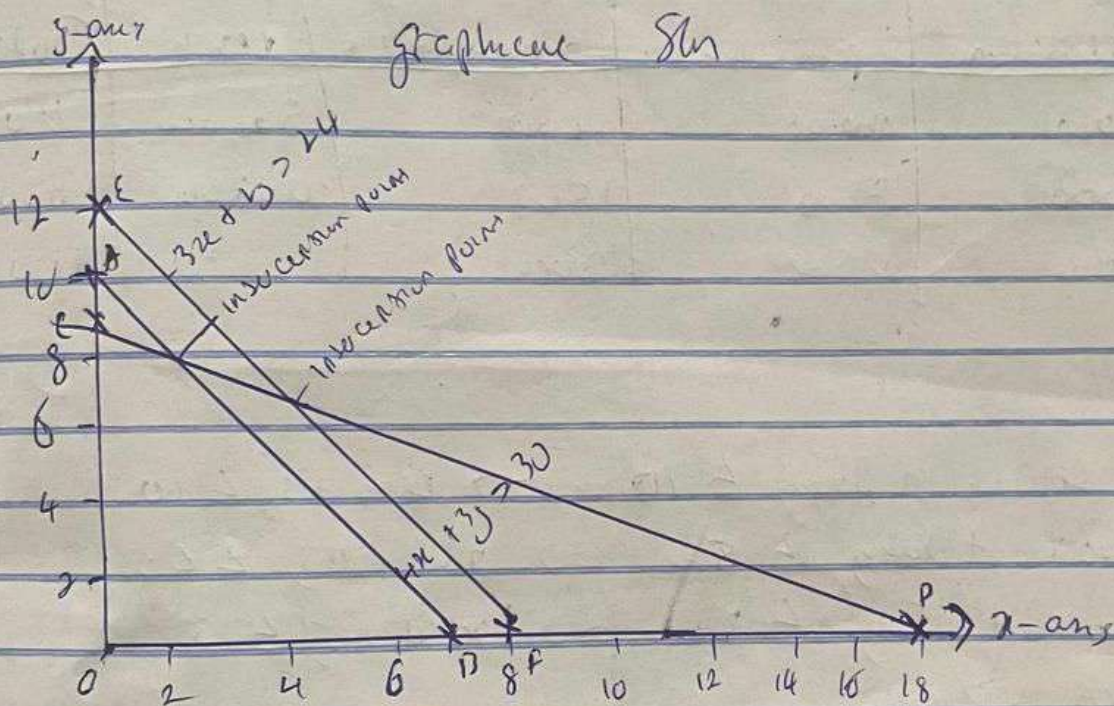 y-axis
graphical Sln
12 E
3x + 2y > 24
intersection point
10 A
intersection point
C
8
6
4x + 3y > 30
4
2
P
x-axis
0 2 4 6 B 8 F 10 12 14 16 18